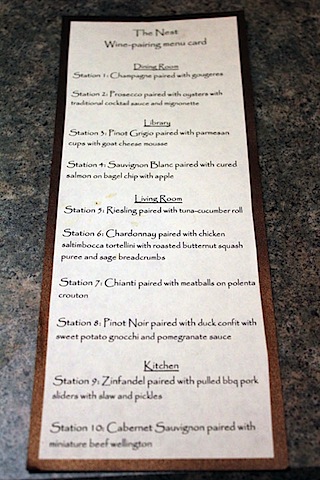 The Nest
Wine-pairing menu card
Dining Room
Station 1: Champagne paired with gougeres
Station 2: Prosecco paired with oysters with
traditional cocktail sauce and mignonette
Library
Station 3: Pinot Grigio paired with parmesan
cups with goat cheese mousse
Station 4: Sauvignon Blanc paired with cured
salmon on bagel chip with apple
Living Room
Station 5: Riesling paired with tuna-cucumber roll
Station 6: Chardonnay paired with chicken
saltimbocca tortellini with roasted butternut squash
puree and sage breadcrumbs
Station 7: Chianti paired with meatballs on polenta
crouton
Station 8: Pinot Noir paired with duck confit with
sweet potato gnocchi and pomegranate sauce
Kitchen
Station 9: Zinfandel paired with pulled bbq pork
sliders with slaw and pickles
Station 10: Cabernet Sauvignon paired with
miniature beef wellington